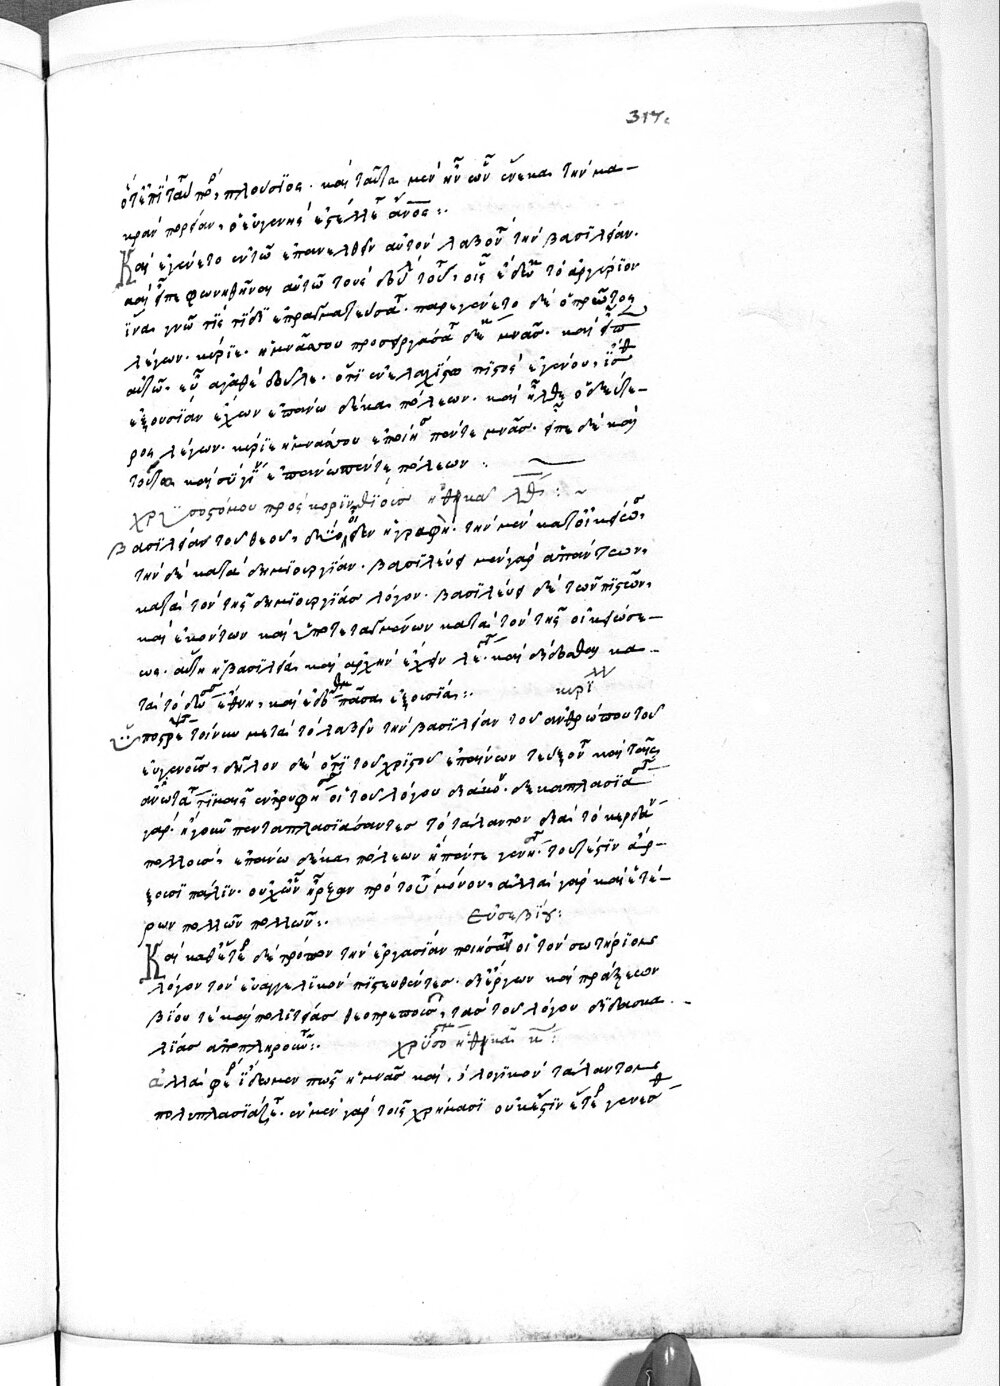 317.
ὅτι ἐπὶ πλούσιος. καὶ ταῦτα μὲν ἦν ὧν ἕνεκα τὴν μα-
κρὰν πορείαν, ὁ εὐγενὴς ἐστέλλετο ἄνος:.
Καὶ ἐγένετο ἐν τῶ ἐπανελθεῖν αὐτὸν λαβόντα τὴν βασιλείαν.
καὶ εἶπε φωνηθῆναι αὐτῶ τοὺς δούλους τούτους, οἷς ἔδωκε τὸ ἀργύριον
ἵνα γνῶ τίς τί διεπραγματεύσατο. παρεγένετο δὲ ὁ πρῶτος
λέγων. κύριε. ἡ μνᾶ σου προσειργάσατο δέκα μνᾶς. καὶ εἶπεν
αὐτῶ. εὖ ἀγαθὲ δοῦλε. ὅτι ἐν ἐλαχίστω πιστὸς ἐγένου, ἴσθι
ἐξουσίαν ἔχων ἐπάνω δέκα πόλεων. καὶ ἦλθεν ὁ δεύτε-
ρος λέγων. κύριε ἡ μνᾶ σου ἐποίησε πέντε μνᾶς. εἶπε δὲ καὶ
τούτω καὶ σὺ γίνου ἐπάνω πέντε πόλεων:
χρυσοστόμου πρὸς κορινθίους ἠθικὸν λθ:
βασιλείαν τοῦ θεοῦ, δύο οἶδεν ἡ γραφή. τὴν μὲν κατ' οἰκείωσιν,
τὴν δὲ κατὰ δημιουργίαν. βασιλεύει μὲν γὰρ ἁπάντων,
κατὰ τὸν τῆς δημιουργίας λόγον. βασιλεύει δὲ τῶν πιστῶν,
καὶ ἑκόντων καὶ ὑποτεταγμένων κατὰ τὸν τῆς οἰκειώσε-
ως. αὕτη ἡ βασιλεία καὶ ἀρχὴν ἔχειν λέγεται. καὶ δίδοται κα-
τὰ τὸ δώσω σοι ἔθνη, καὶ ἐδόθη μοι πᾶσα ἐξουσία:. κυρίλλου
ὑποστρέψαντος τοίνυν μετὰ τὸ λαβεῖν τὴν βασιλείαν τοῦ ἀνθρώπου τοῦ
εὐγενοῦς, δῆλον δὲ ὅτι τοῦ χριστοῦ ἐπαίνων τεύξονται καὶ ταῖς
ἀνωτάτω τιμαῖς ἐντρυφήσουσιν οἱ τοῦ λόγου διάκονοι. δεκαπλασιάσαντες
γὰρ. ἤγουν πενταπλασιάσαντες τὸ τάλαντον διὰ τὸ κερδᾶναι
πολλούς, ἐπάνω δέκα πόλεων ἢ πέντε γενήσονται. τουτέστιν ἄρ-
ξουσι πάλιν. οὐχ ὧν ἦρξαν πρὸ τούτου μόνον, ἀλλὰ γὰρ καὶ ἑτέ-
ρων πολλῶν πολλῶν:. Εὐσεβίου:
Καὶ καθ' ἕτερον δὲ τρόπον τὴν ἐργασίαν ποιήσονται οἱ τὸν σωτήριον
λόγον τὸν εὐαγγελικὸν πιστευθέντες. δι' ἔργων καὶ πράξεων
βίου τὲ καὶ πολιτείας θεοπρεποῦς, τὰς τοῦ λόγου διδασκα-
λίας ἀποπληροῦντες:. χρυσοστόμου ἠθικὸν κ:
ἀλλὰ φέρε ἴδωμεν πῶς ἡ μνᾶ καὶ, τὸ λογικὸν τάλαντον
πολυπλασιάζεται. ἐν μὲν γὰρ τοῖς χρήμασι οὐκ ἔστιν ἕτερον γενέσθαι